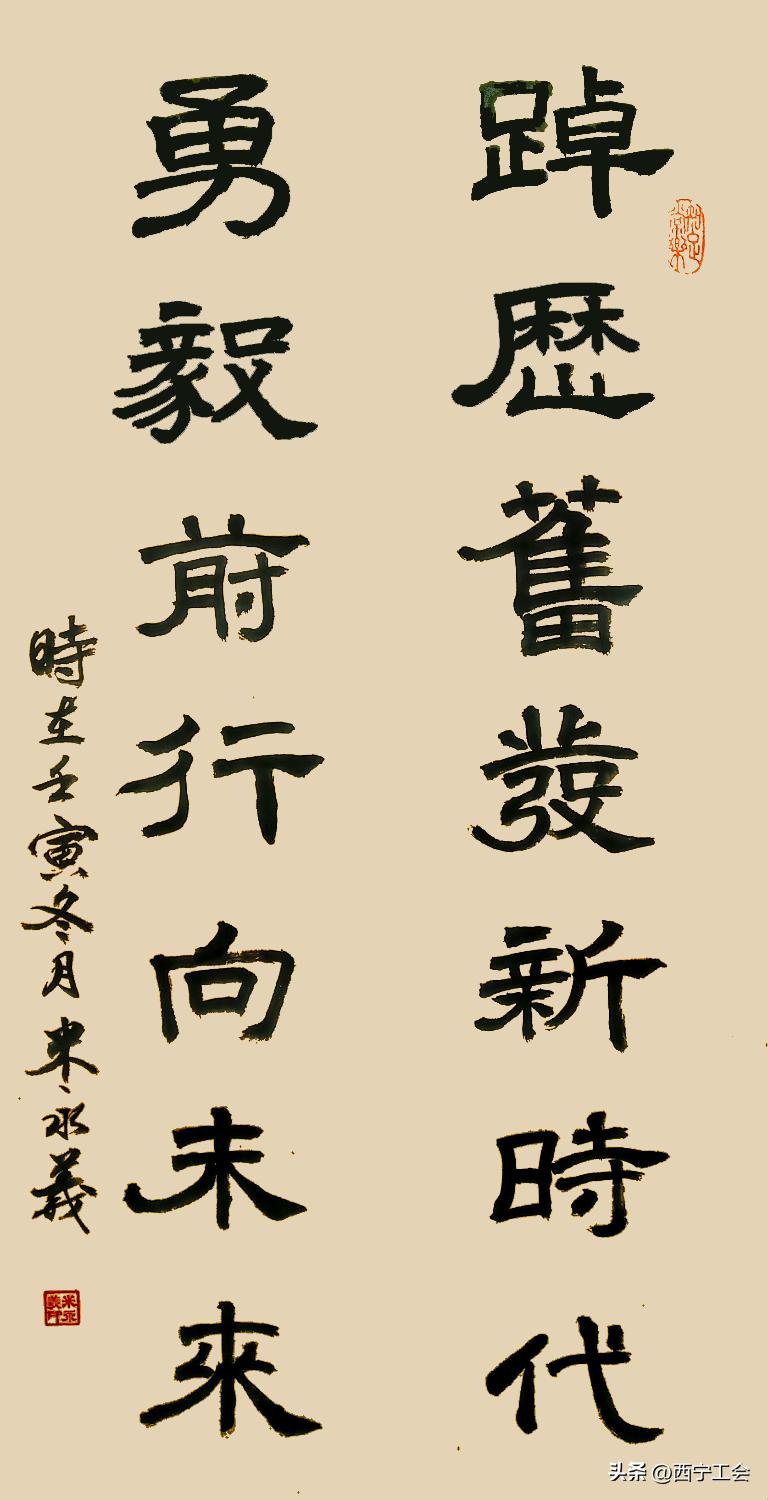 知足常樂
踔歷舊發新時代
勇毅前行向未來
時在壬寅冬月米永義
米永義印
头条 @西宁工会